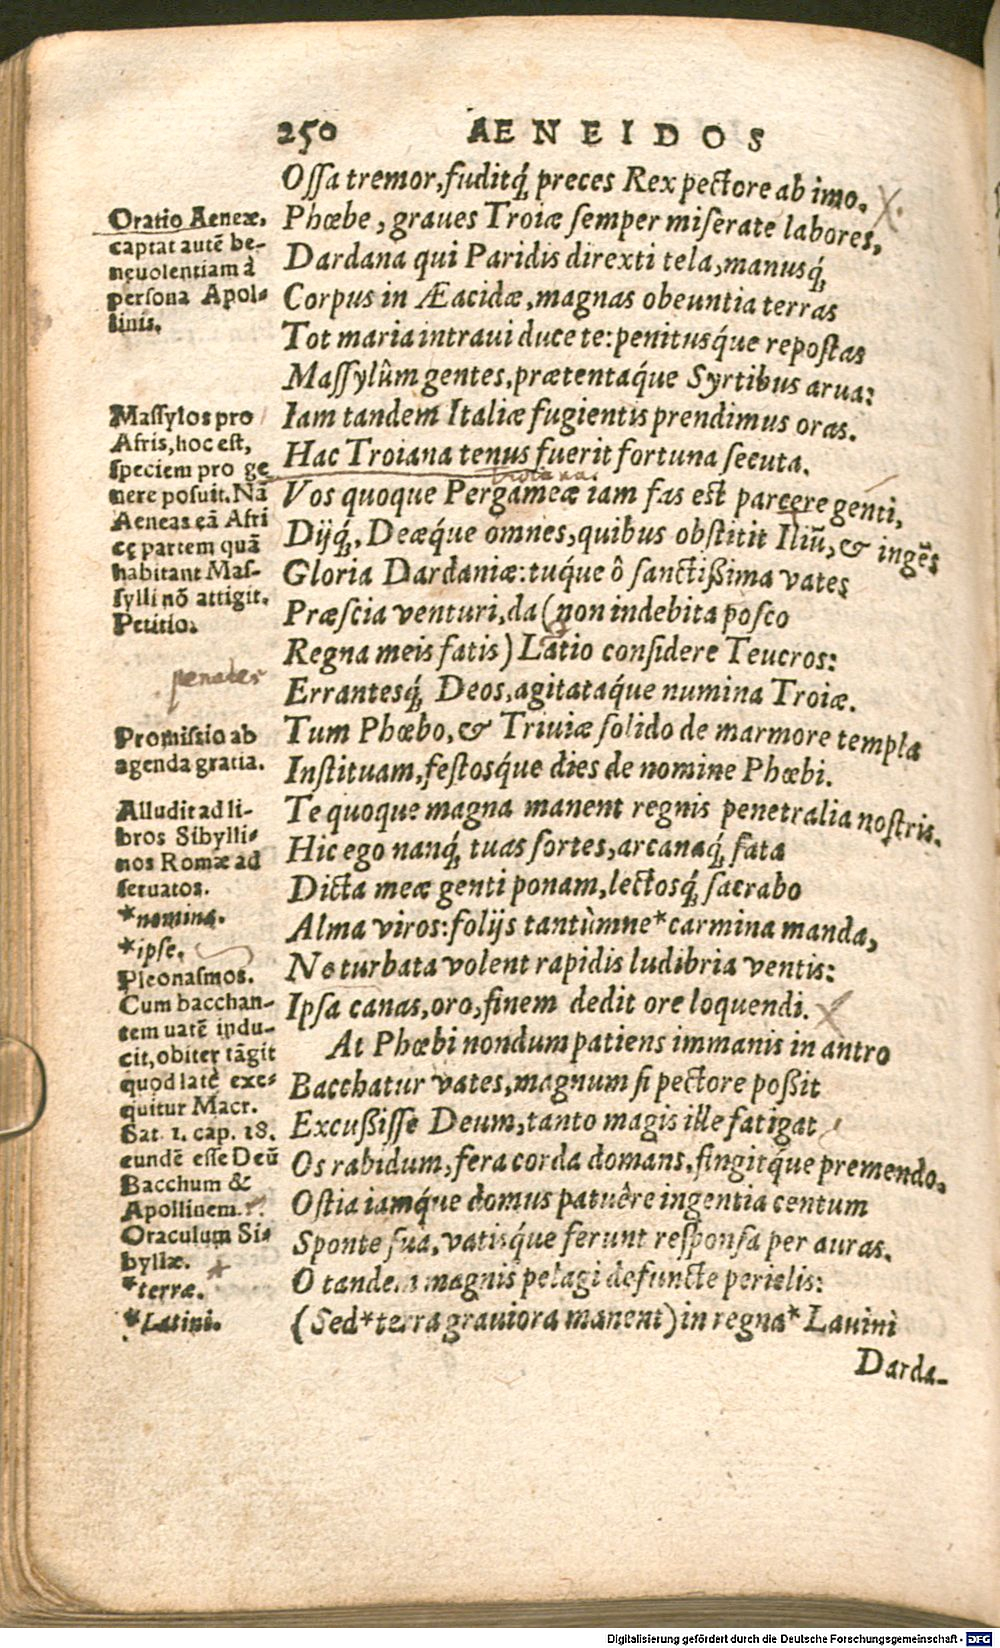 250 AENEIDOS
Ossa tremor, fuditq́; preces Rex pectore ab imo.
Phœbe, graues Troiæ semper miserate labores,
Dardana qui Paridis direxti tela, manusq́;
Corpus in Æacidæ, magnas obeuntia terras
Tot maria intraui duce te: penitusq́ue repostas
Massylûm gentes, prætentaq́ue Syrtibus arua:
Iam tandem Italiæ fugientis prendimus oras.
Hac Troiana tenus fuerit fortuna secuta.
Vos quoque Pergameæ iam fas est parcere genti,
Dijq́;, Deæq́ue omnes, quibus obstitit Iliū, & ingēs
Gloria Dardaniæ: tuq́ue ô sanctißima vates
Præscia venturi, da (non indebita posco
Regna meis fatis) Latio considere Teucros:
Errantesq́; Deos, agitataq́ue numina Troiæ.
Tum Phœbo, & Triuiæ solido de marmore templa
Instituam, festosq́ue dies de nomine Phœbi.
Te quoque magna manent regnis penetralia nostris.
Hic ego nanq́; tuas sortes, arcanaq́; fata
Dicta meæ genti ponam, lectosq́; sacrabo
Alma viros: folijs tantùm ne*carmina manda,
Ne turbata volent rapidis ludibria ventis:
Ipsa canas, oro, finem dedit ore loquendi.
At Phœbi nondum patiens immanis in antro
Bacchatur vates, magnum si pectore poßit
Excußisse Deum, tanto magis ille fatigat
Os rabidum, fera corda domans, fingitq́ue premendo.
Ostia iamq́ue domus patuêre ingentia centum
Sponte sua, vatisq́ue ferunt responsa per auras.
O tandem magnis pelagi defuncte periclis:
(Sed*terra grauiora manent) in regna* Lauini
Darda-
Oratio Aeneæ,
captat autē be-
neuolentiam à
persona Apol-
linis.
Massylos pro
Afris, hoc est,
speciem pro ge
nere posuit. Nā
Aeneas eā Afri
cę partem quā
habitant Mas-
sylli nō attigit.
Petitio.
penates
Promissio ab
agenda gratia.
Alludit ad li-
bros Sibylli-
nos Romæ ad
seruatos.
*nomina.
*ipse.
Pleonasmos.
Cum bacchan-
tem uatē indu-
cit, obiter tāgit
quod latè exe-
quitur Macr.
Sat. 1. cap. 18.
eundē esse Deū
Bacchum &
Apollinem.
Oraculum Si-
byllæ.
*terræ.
*Latini.
Digitalisierung gefördert durch die Deutsche Forschungsgemeinschaft - DFG